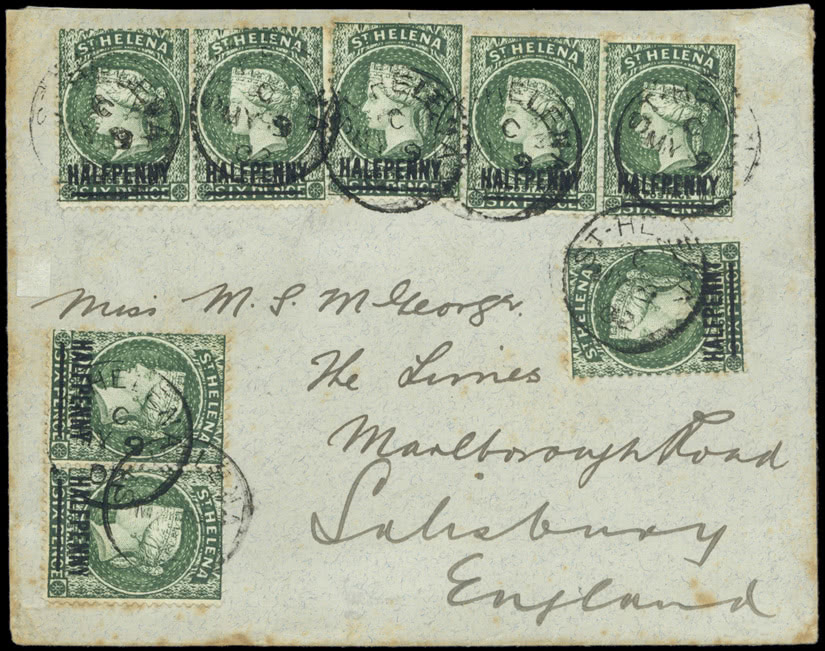 ST HELENA ST HELENA ST HELENA ST HELENA ST HELENA
HALFPENNY HALFPENNY HALFPENNY HALFPENNY HALFPENNY
SIX PENCE SIX PENCE SIX PENCE SIX PENCE SIX PENCE
ST HELENA
HALFPENNY
SIX PENCE
Miss M. S. McGeorge.
The Limes
Marlborough Road
Salisbury
England
ST HELENA
HALFPENNY
SIX PENCE
ST HELENA
HALFPENNY
SIX PENCE